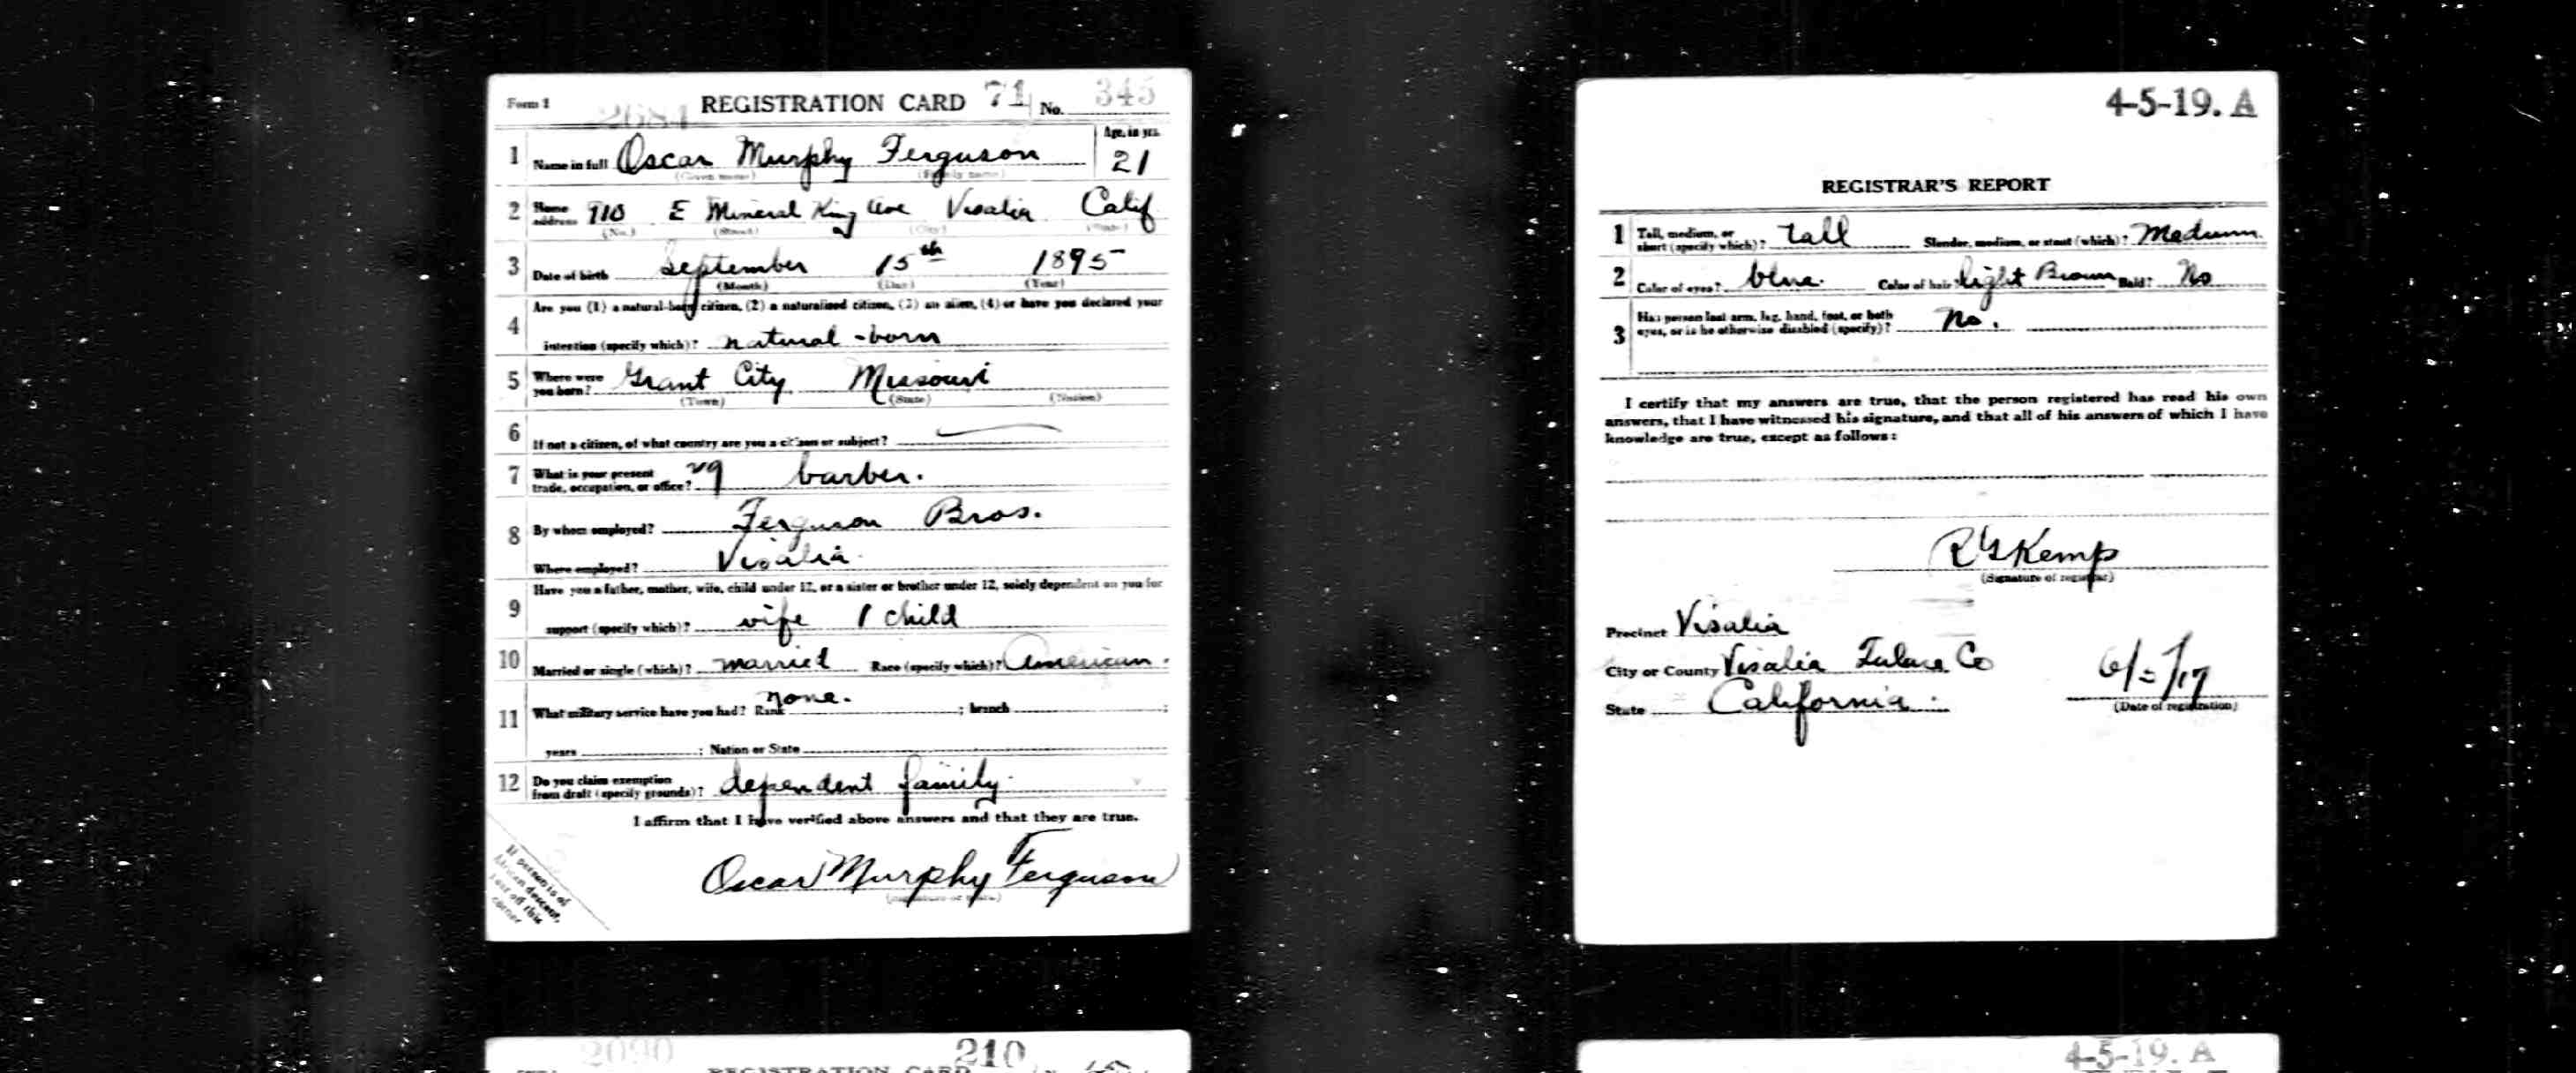 Form 1 2684 REGISTRATION CARD 71 No. 345
1 Name in full Oscar Murphy Ferguson Age, in yrs. 21
(Given name) (Family name)
2 Home address E Mineral King Ave Visalia Calif
(No.) (Street) (City) (State)
3 Date of birth September 15th 1895
(Month) (Day) (Year)
Are you (1) a natural-born citizen, (2) a naturalized citizen, (3) an alien, (4) or have you declared your
4 intention (specify which)? natural-born
5 Where were you born? Grant City Missouri
(Town) (State) (Nation)
6 If not a citizen, of what country are you a citizen or subject?
7 What is your present trade, occupation, or office? 29 barber.
8 By whom employed? Ferguson Bros.
Where employed? Visalia
Have you a father, mother, wife, child under 12, or a sister or brother under 12, solely dependent on you for
9 support (specify which)? wife 1 child
10 Married or single (which)? married Race (specify which)? American.
11 What military service have you had? Rank none. ; branch ;
years ; Nation or State
12 Do you claim exemption from draft (specify grounds)? dependent family.
I affirm that I have verified above answers and that they are true.
Oscar Murphy Ferguson
If person is of
African descent,
tear off this
corner
2090 210
REGISTRATION CARD
4-5-19. A
REGISTRAR'S REPORT
1 Tall, medium, or short (specify which)? tall Slender, medium, or stout (which)? Medium.
2 Color of eyes? blue. Color of hair? light Brown Bald? No
3 Has person lost arm, leg, hand, foot, or both eyes, or is he otherwise disabled (specify)? No.
I certify that my answers are true, that the person registered has read his own
answers, that I have witnessed his signature, and that all of his answers of which I have
knowledge are true, except as follows:
Kemp
(Signature of registrar)
Precinct Visalia
City or County Visalia Tulare Co
State California.
(Date of registration)
4-5-19. A